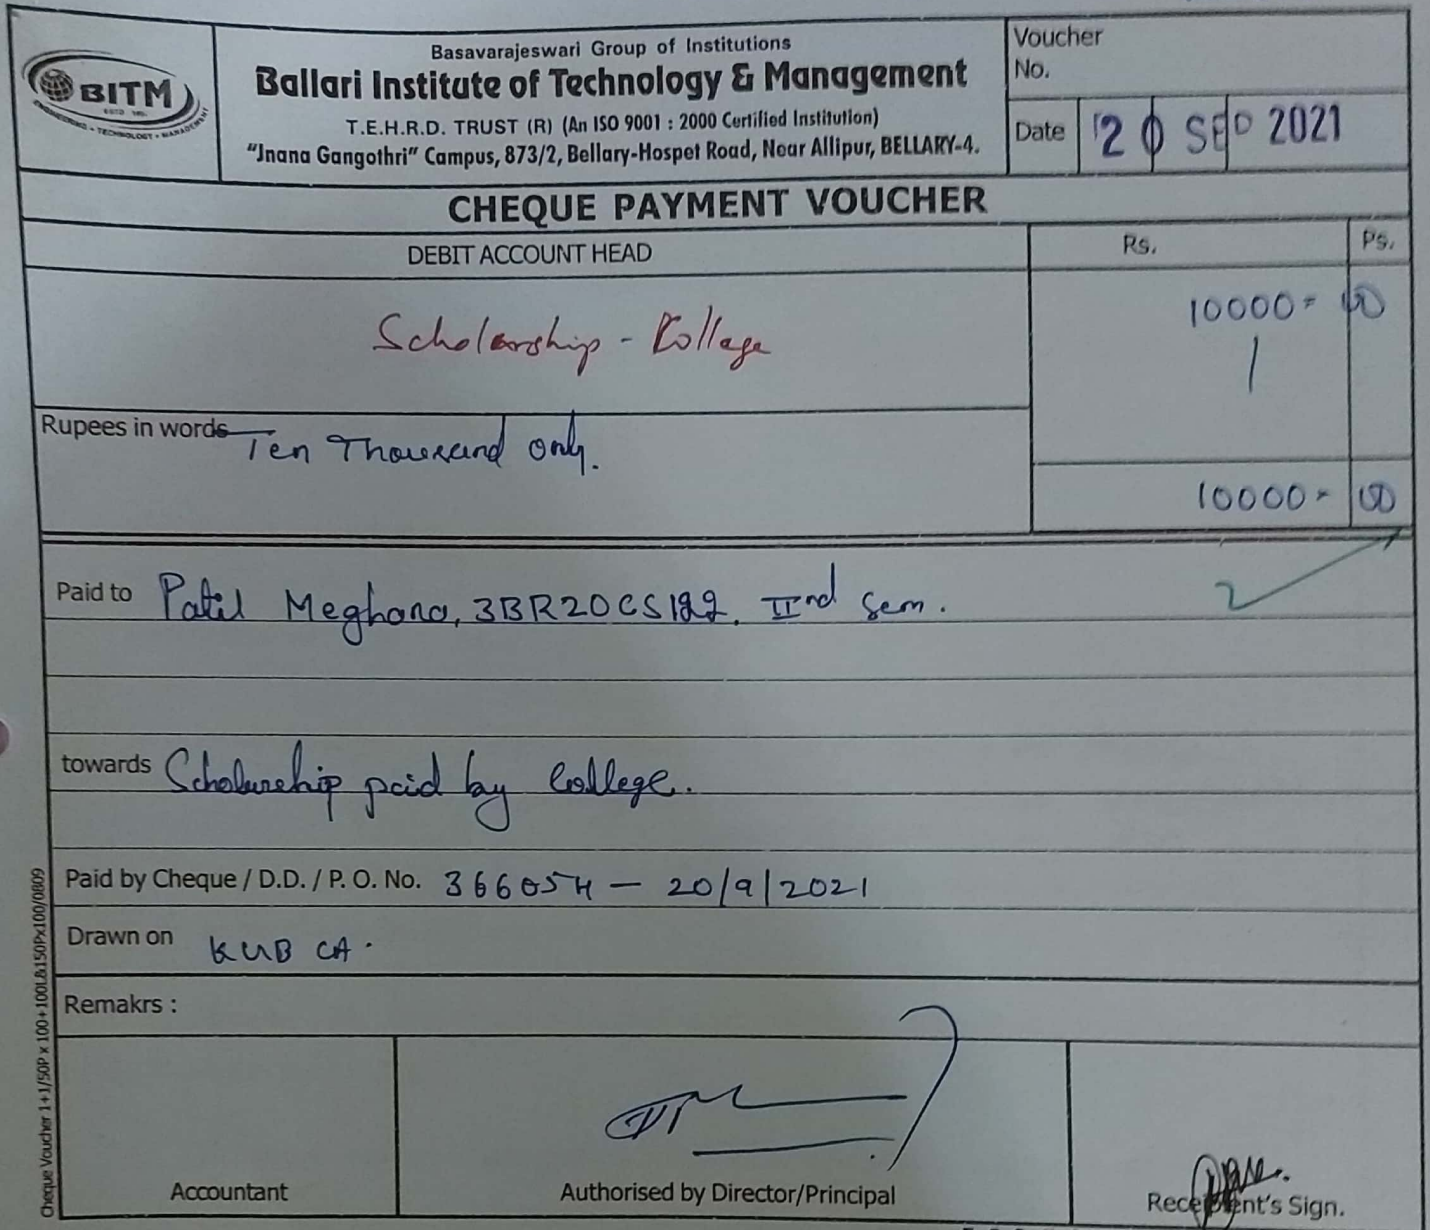 BITM
ESTD 1997
ENGINEERING • TECHNOLOGY • MANAGEMENT
Basavarajeswari Group of Institutions
Ballari Institute of Technology & Management
T.E.H.R.D. TRUST (R) (An ISO 9001 : 2000 Certified Institution)
"Jnana Gangothri" Campus, 873/2, Bellary-Hospet Road, Near Allipur, BELLARY-4.
Voucher
No.
Date 20 SEP 2021
CHEQUE PAYMENT VOUCHER
DEBIT ACCOUNT HEAD Rs. Ps.
Scholarship - College 10000 = 00
Rupees in words Ten Thousand only.
10000 = 00
Paid to Patil Meghana, 3BR20CS122, IInd Sem.
towards Scholarship paid by College.
Paid by Cheque / D.D. / P. O. No. 366054 — 20/9/2021
Drawn on KUB CA.
Remakrs :
Accountant Authorised by Director/Principal Recepient's Sign.
Cheque Voucher 1+1/50P x 100+100L&150Px100/0809